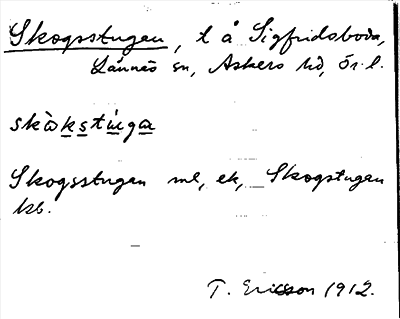 Skogsstugen, t å Sigfridsboda,
Lännäs sn, Askers hd, Ör. l.
skòkstu̇ga
Skogsstugen ml, ek, Skogstugen
kb.
T. Ericsson 1912.